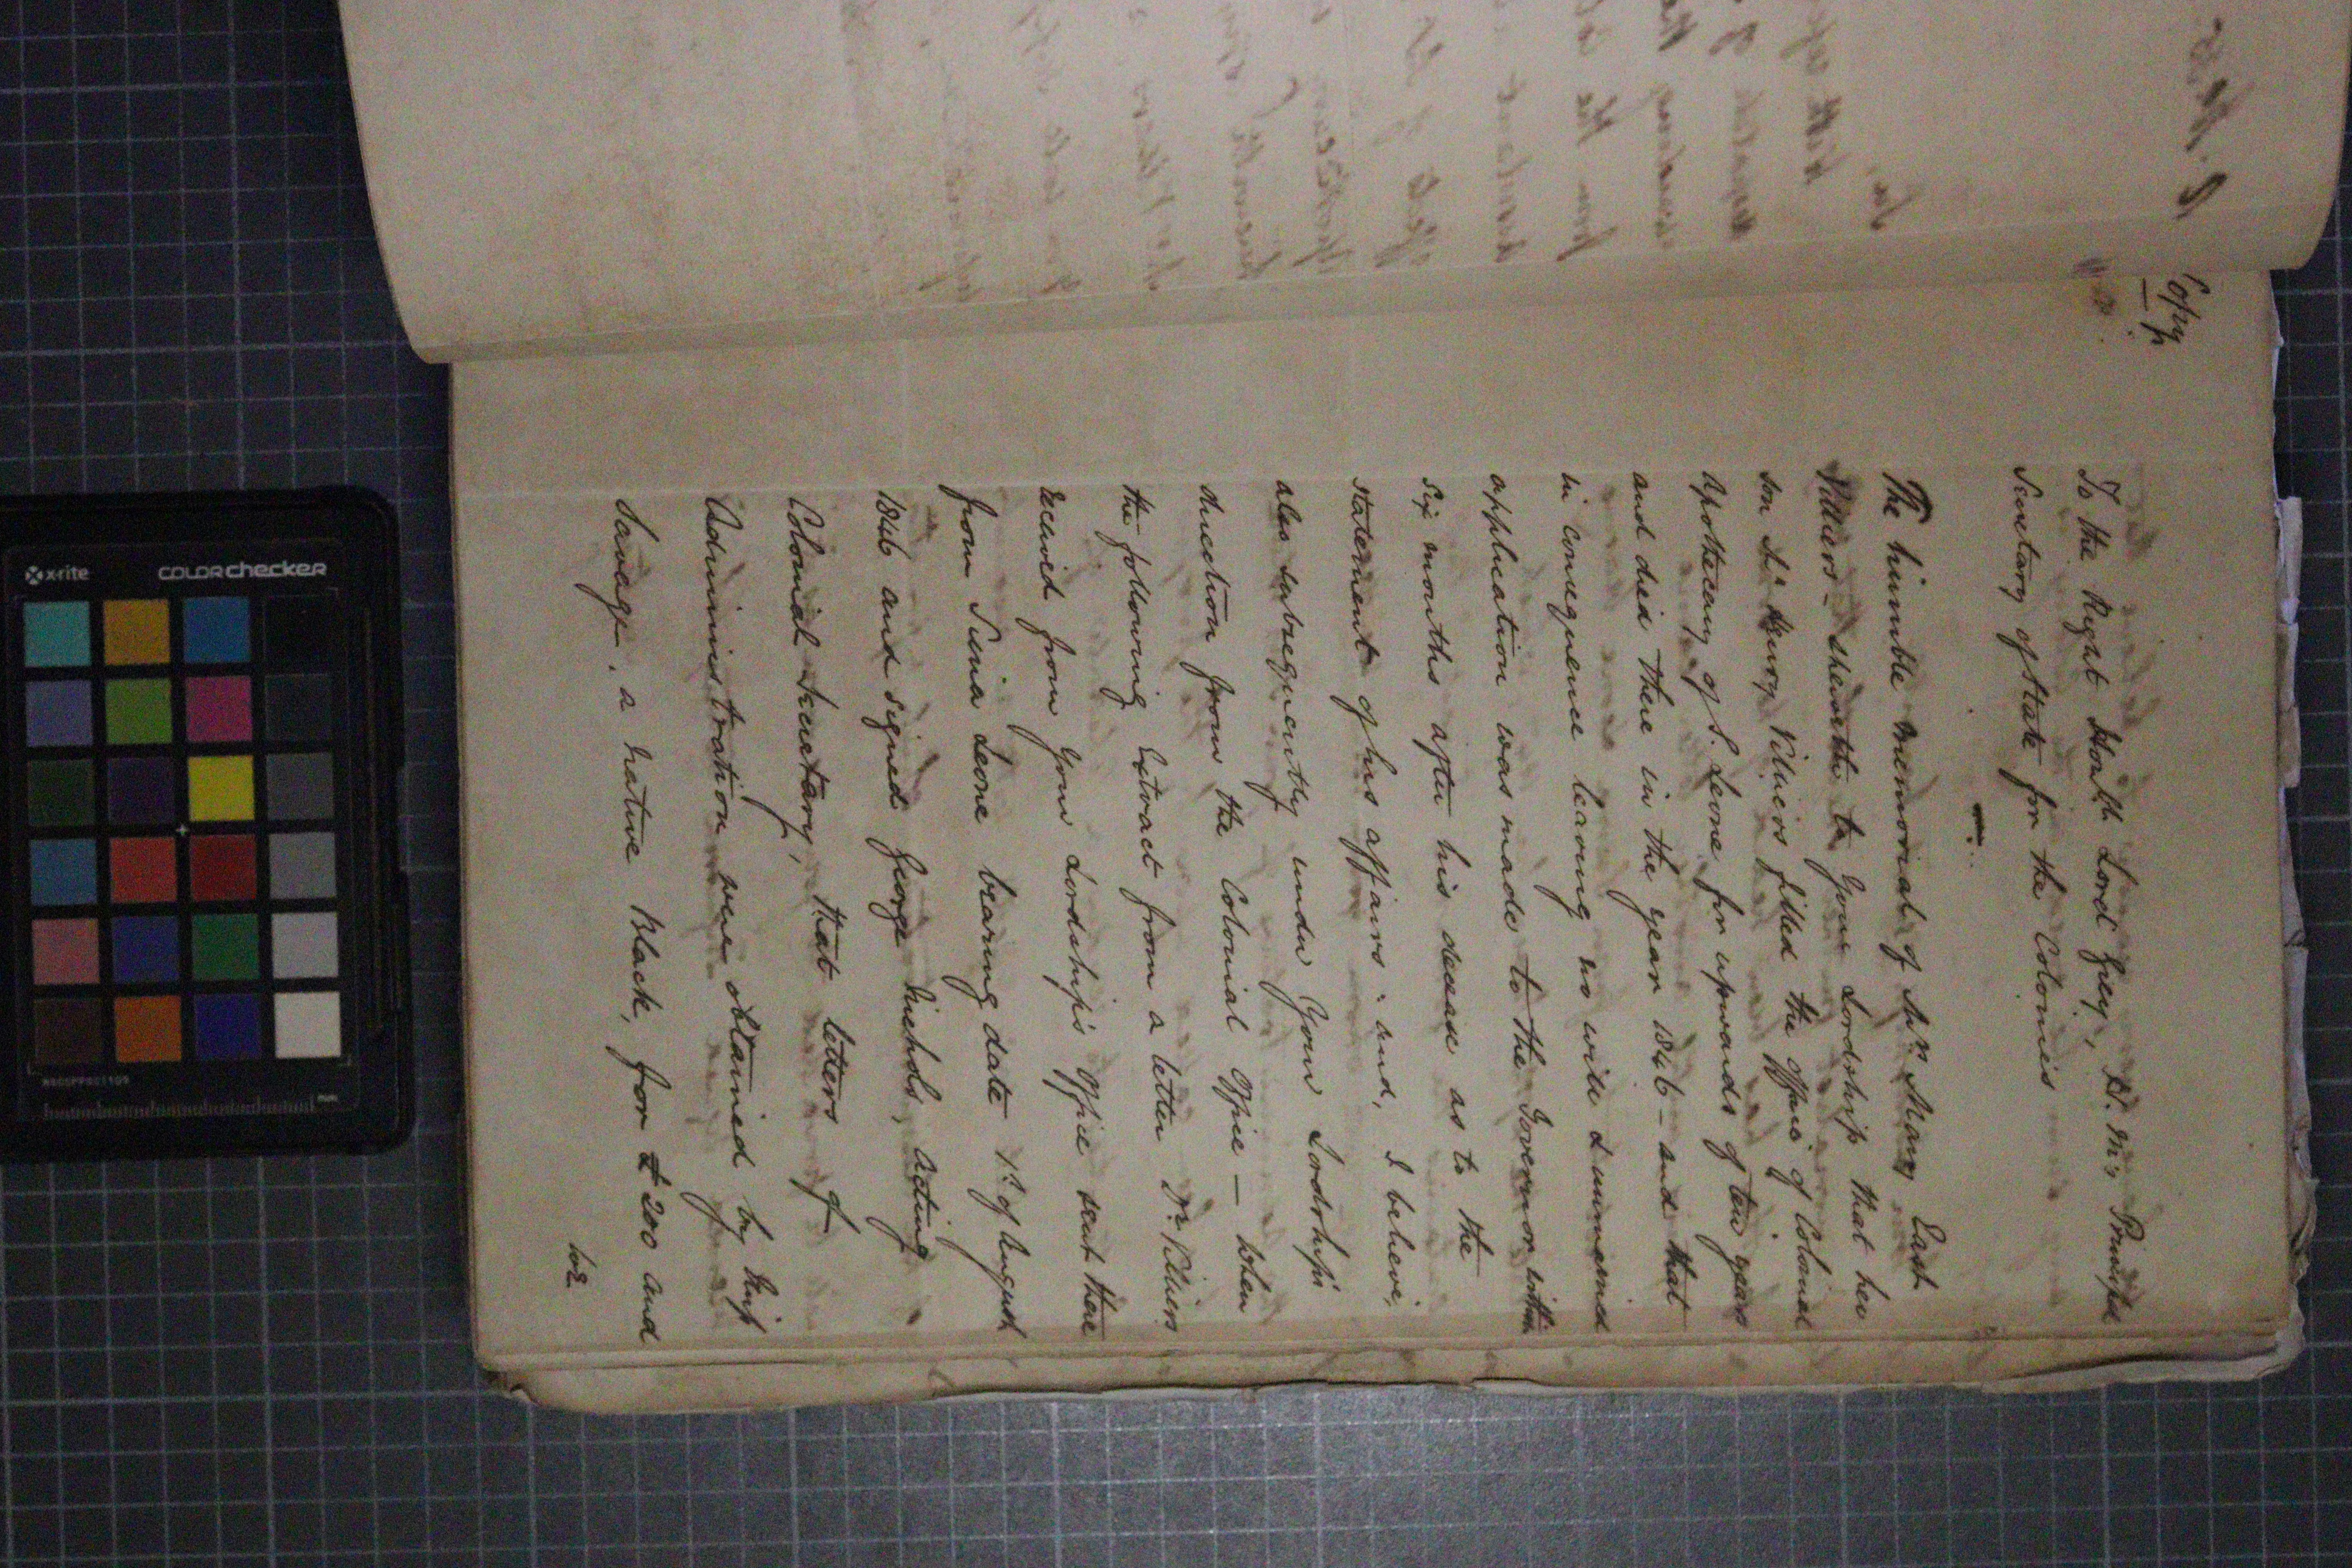 Copy
To the Right Honble Lord Grey, H. M's Principal
Secretary of State for the Colonies
The humble memorial of Mrs Mary East
Villiers sheweth to Your Lordship that her
son Dr Henry Villiers filled the office of Colonial
Apothecary of S. Leone for upwards of ten years
and died there in the year 1846 – and that
in consequence leaving no will I immericd
application was made to the Governor within
six months after his decease as to the
statement of his affairs: and, I believe,
also subsequently under Your Lordship's
direction from the Colonial Office – when
the following Extract from a letter Dr Villiers
received from Your Lordship's Office sent there
from Sierra Leone bearing date 1st of August
1846 and signed George Nichols, Acting
Colonial Secretary, that letters of
Administration were obtained by
Savage, a native Black, for £200 and
x-rite
COLORchecker
mm